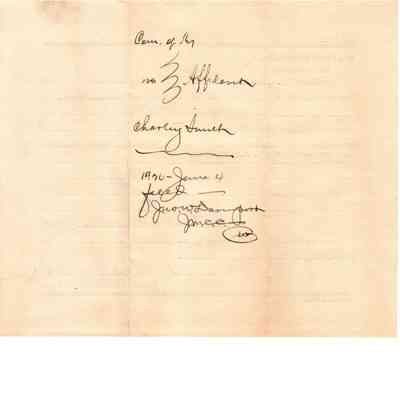 Com. of Ky
vs } Affidavit
Charley Smith
1926 - June 4
filed
Jno W Davenport
JMCC